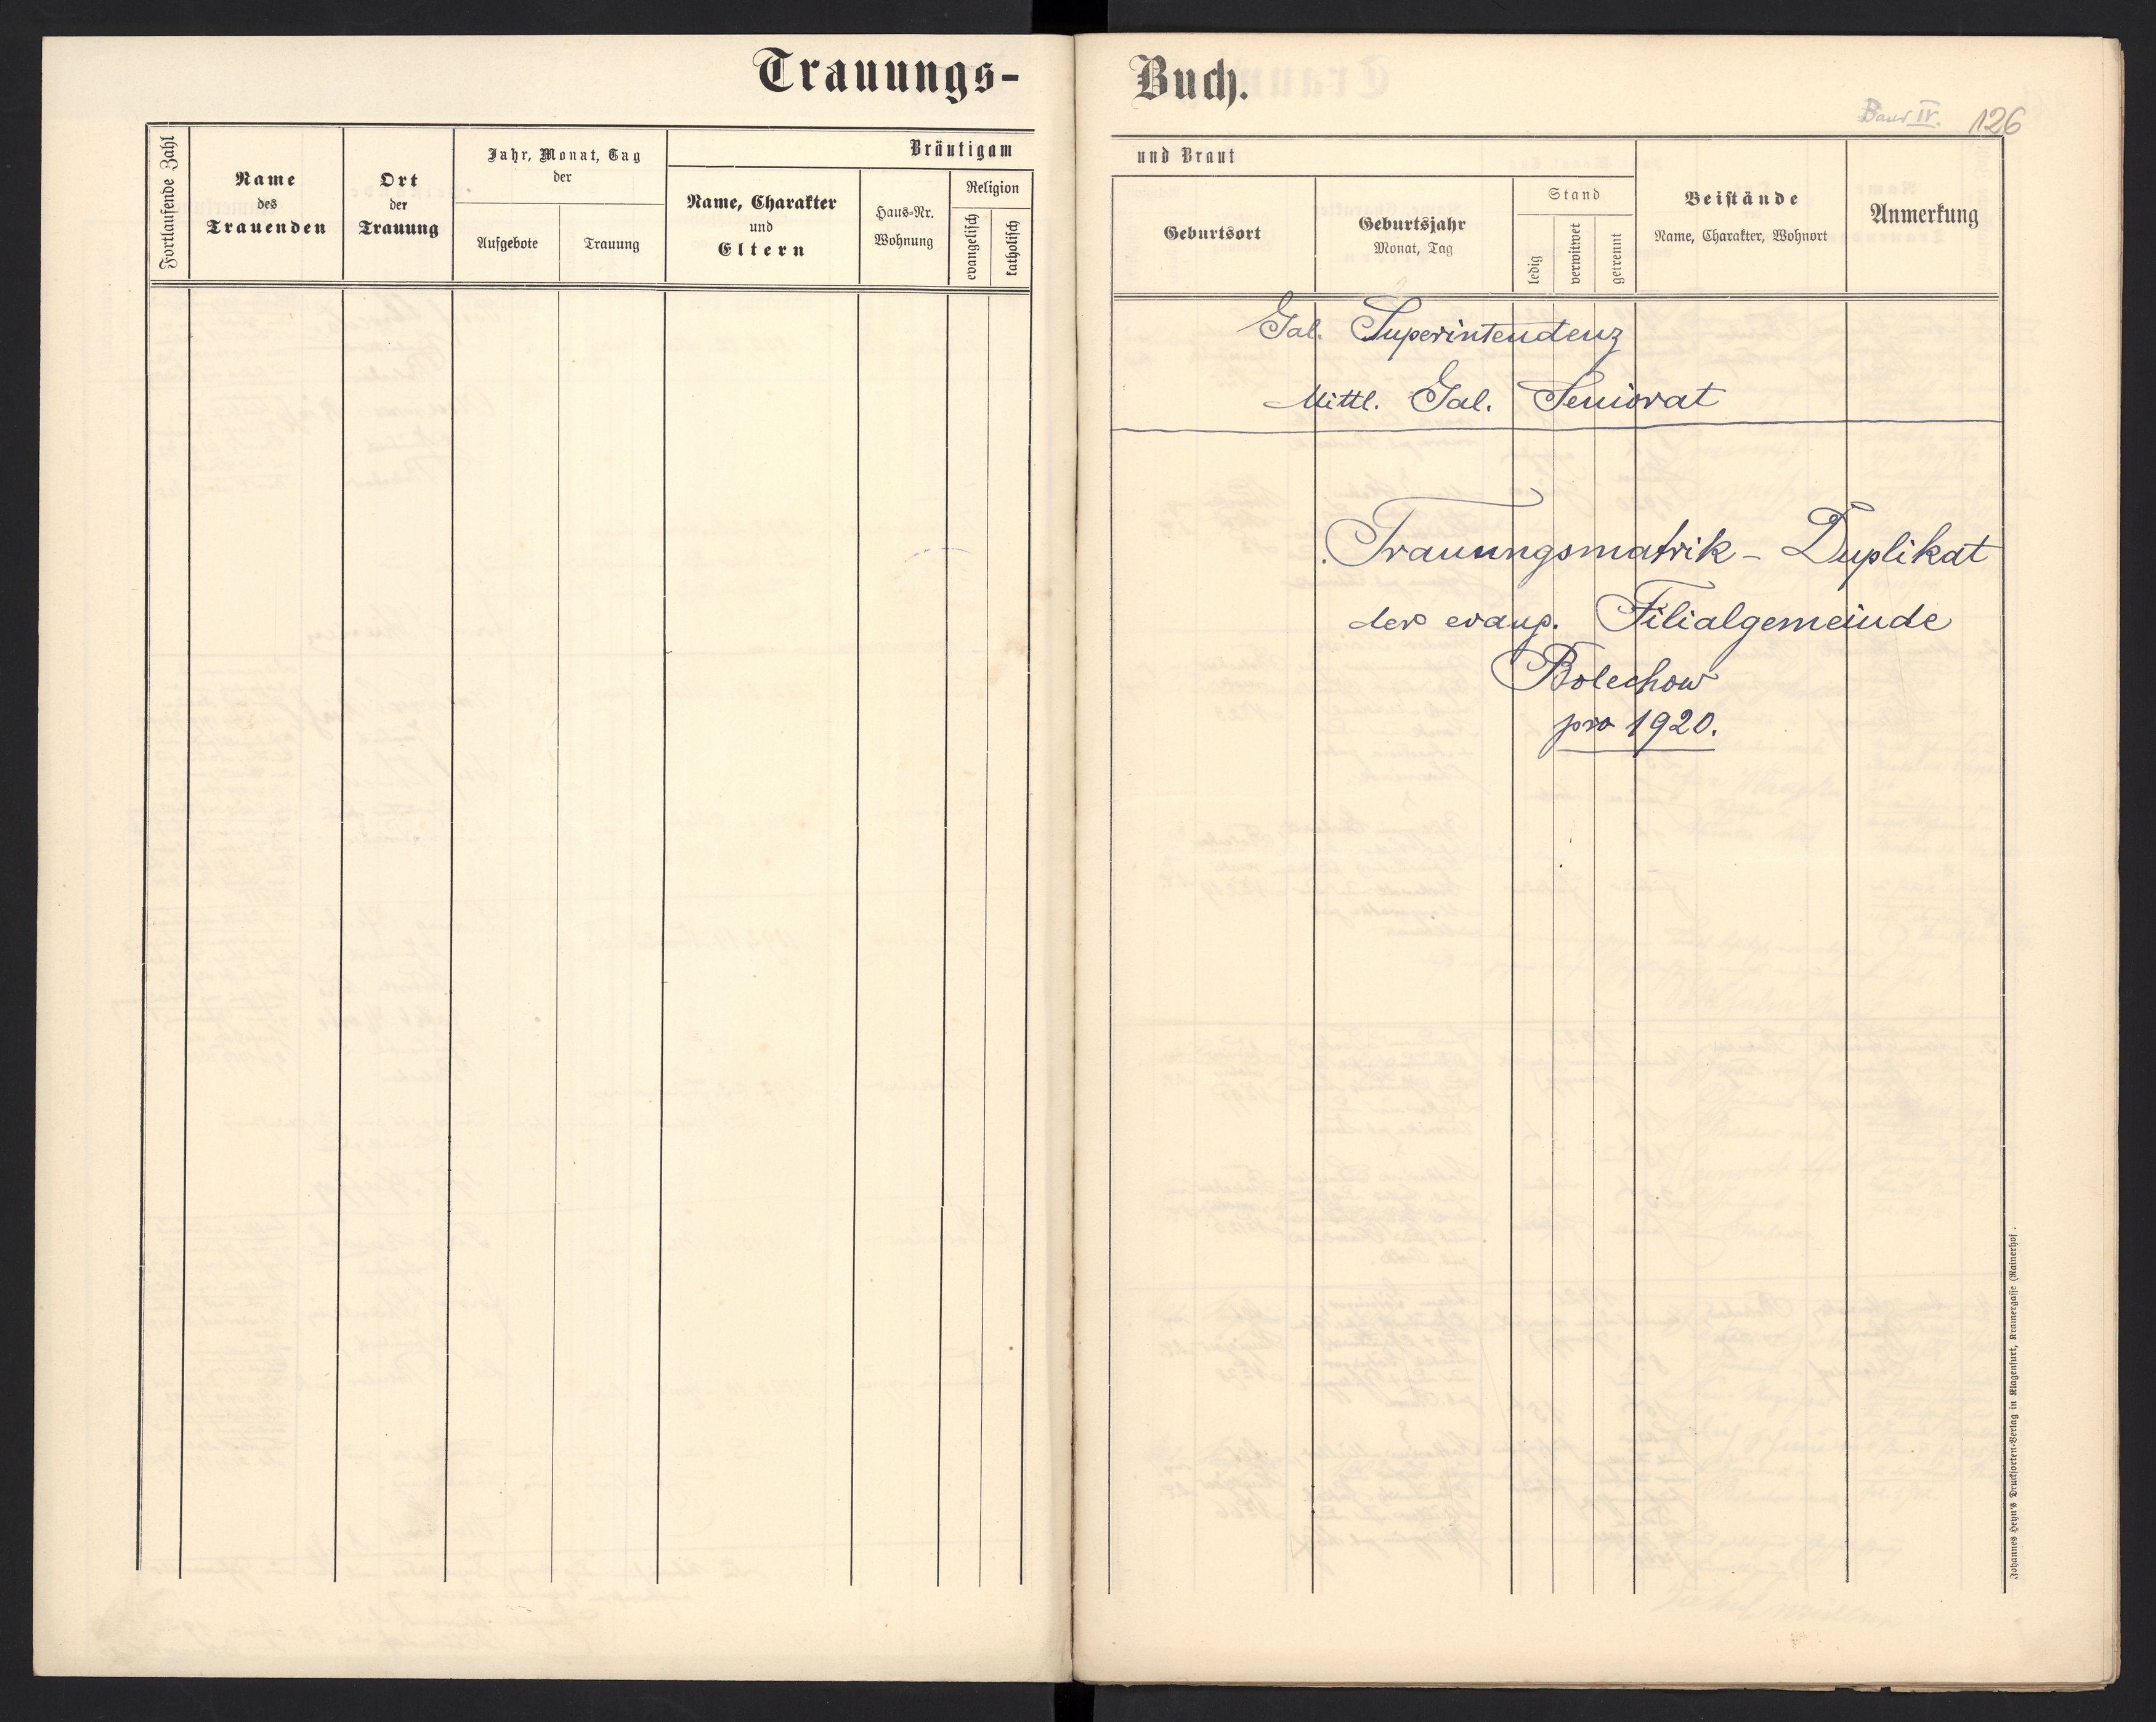 Trauungs-
Buch.
Band IV. 126
Fortlaufende Zahl
Name
des
Trauenden
Ort
der
Trauung
Jahr, Monat, Tag
der
Aufgebote
Trauung
Bräutigam
Name, Charakter
und
Eltern
Haus-Nr.
Wohnung
Religion
evangelisch
katholisch
und Braut
Geburtsort
Geburtsjahr
Monat, Tag
Stand
ledig
verwitwet
getrennt
Beistände
Name, Charakter, Wohnort
Anmerkung
Gal. Superintendenz
Mittl. Gal. Seniorat
Trauungsmatrik - Duplikat
der evang. Filialgemeinde
Bolechow
pro 1920.
Johannes Heyn's Drucksorten-Verlag in Klagenfurt, Kramergasse (Rainerhof.